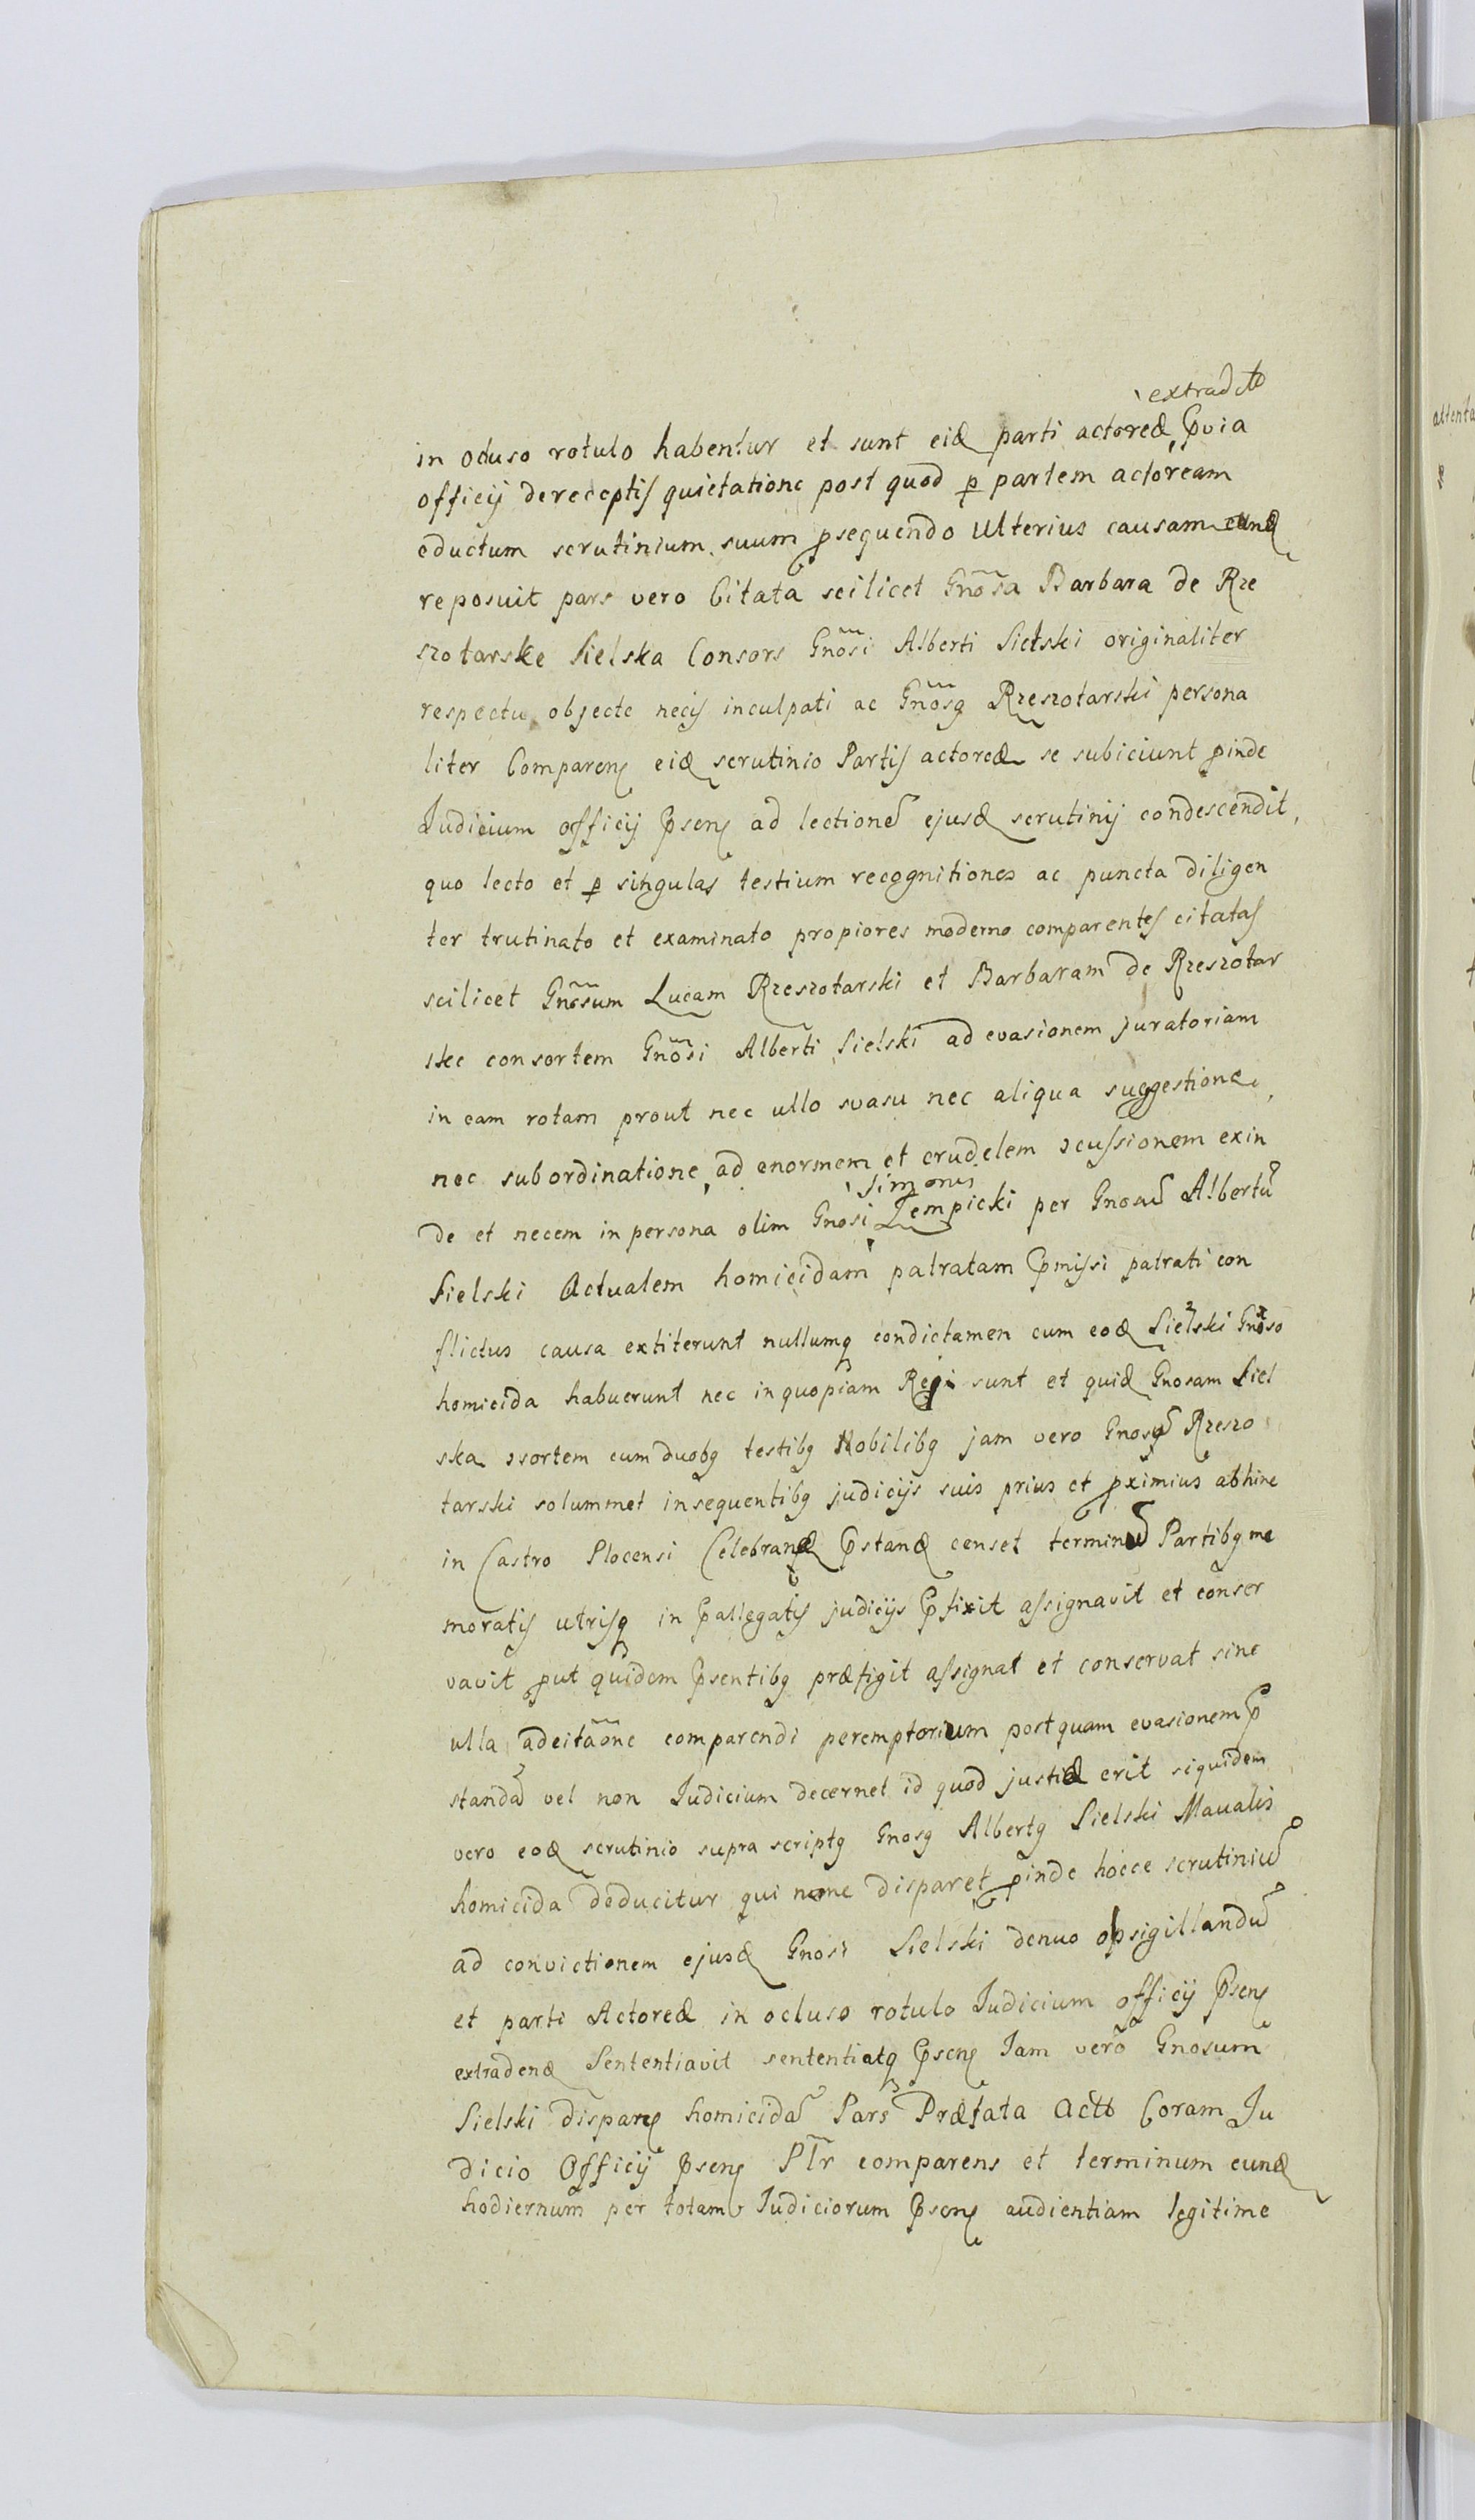 extradctæ
in ocluso rotulo habentur et sunt eid parti actoreæ, pvia
officij de receptis quietatione post quod p partem actoream
eductum scrutinium suum psequendo ulterius causam eund
reposuit pars vero Citata scilicet Gnosa Barbara de Rze
szotarske Sielska Consors Gnosi Alberti Sielski originaliter
respectu objecte necis inculpati ac Gnosq Rzeszotarski persona
liter Comparens eid scrutinio Partis actoreæ se subiciunt pinde
Judicium officij psens ad lectione ejusd scrutinij condescendit,
quo lecto et p singulas testium recognitiones ac puncta diligen
ter trutinato et examinato propiores moderno comparentes citatas
scilicet Gnosum Lucam Rzeszotarski et Barbaram de Rzeszotar
skee consortem Gnosi Alberti Sielski ad evasionem juratoriam
in eam rotam prout nec ullo svasu nec aliqua suggestione,
nec subordinatione, ad enormem et crudelem ↄcussionem exin
Simonis
de et necem in persona olim Gnosi Zempicki per Gnosu Albertu
Sielski Actualem homicidam patratam pmissi patrati con
flictus causa extiterunt nullumq condictamen cum eod Sielski Gnoso
homicida habuerunt nec in quopiam Regi sunt et quid Gnosam Siel
ska ↄsortem cum duobq testibq Nobilibq jam vero Gnosu Rzeszo
tarski solummet in sequentibq judicijs suis prius et pximius abhinc
in Castro Plocensi Celebrand pstand censet terminu Partibq me
moratis utrisq in pallegatis judicijs pfixit assignavit et conser
vavit put quidem psentibq præfigit assignat et conservat sine
ulla adcitaone comparendi peremptorium postquam evasionem p
standa vel non Judicium decernet id quod justiæ erit siquidem
vero eod scrutinio supra scriptq Gnosq Albertq Sielski Maualis
homicida deducitur qui nunc disparet pinde hocce scrutiniu
ad convictionem ejusd Gnosi Sielski denuo opsigillandu
et parti Actoreæ in ocluso rotulo Judicium officij psens
extradend Sententiavit sententiatq psens Jam vero Gnosum
Sielski dispars homicida Pars Præfata Actt Coram Ju
dicio Officij psens Pltr comparens et terminum eund
hodiernum per totam Judiciorum psens audientiam legitime